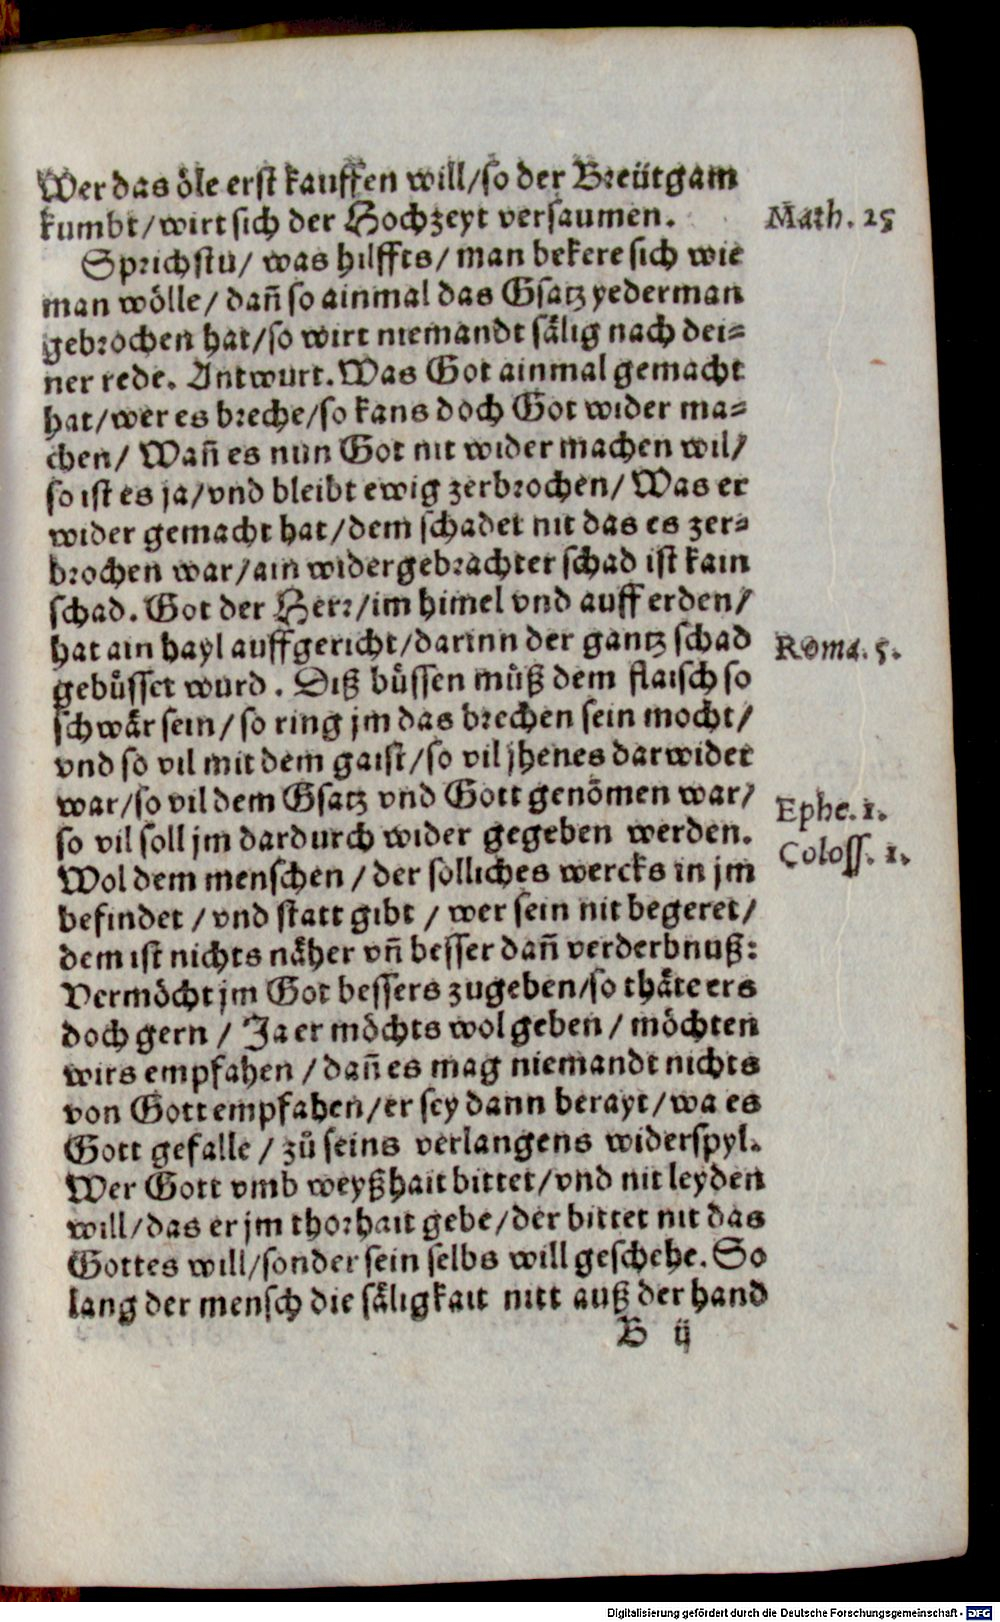 Wer das öle erst kauffen will/so der Breütgam
kumbt/wirt sich der Hochzeyt versaumen.
Math. 25
Sprichstu/ was hilffts/ man bekere sich wie
man wölle/ dañ so ainmal das Gsatz yederman
gebrochen hat/so wirt niemandt sälig nach dei=
ner rede. Antwurt. Was Got ainmal gemacht
hat/wer es breche/so kans doch Got wider ma=
chen/ Wañ es nun Got nit wider machen wil/
so ist es ja/vnd bleibt ewig zerbrochen/ Was er
wider gemacht hat/dem schadet nit das es zer=
brochen war/ain widergebrachter schad ist kain
schad. Got der Herr/im himel vnd auff erden/
hat ain hayl auffgericht/darinn der gantz schad
Roma. 5.
gebüsset wurd. Diß büssen müß dem flaisch so
schwär sein/so ring jm das brechen sein mocht/
vnd so vil mit dem gaist/so vil jhenes darwider
war/so vil dem Gsatz vnd Gott genömen war/
Ephe. 1.
so vil soll jm dardurch wider gegeben werden.
Coloss. 1.
Wol dem menschen/der solliches wercks in jm
befindet/vnd statt gibt/wer sein nit begeret/
dem ist nichts näher vñ besser dañ verderbnuß:
Vermöcht jm Got bessers zugeben/so thäte ers
doch gern/ Ja er möchts wol geben/möchten
wirs empfahen/dañ es mag niemandt nichts
von Gott empfahen/er sey dann berayt/wa es
Gott gefalle/zů seins verlangens widerspyl.
Wer Gott vmb weyßhait bittet/vnd nit leyden
will/das er jm thorhait gebe/der bittet nit das
Gottes will/sonder sein selbs will geschehe. So
lang der mensch die säligkait nitt auß der hand
B ij
Digitalisierung gefördert durch die Deutsche Forschungsgemeinschaft - DFG